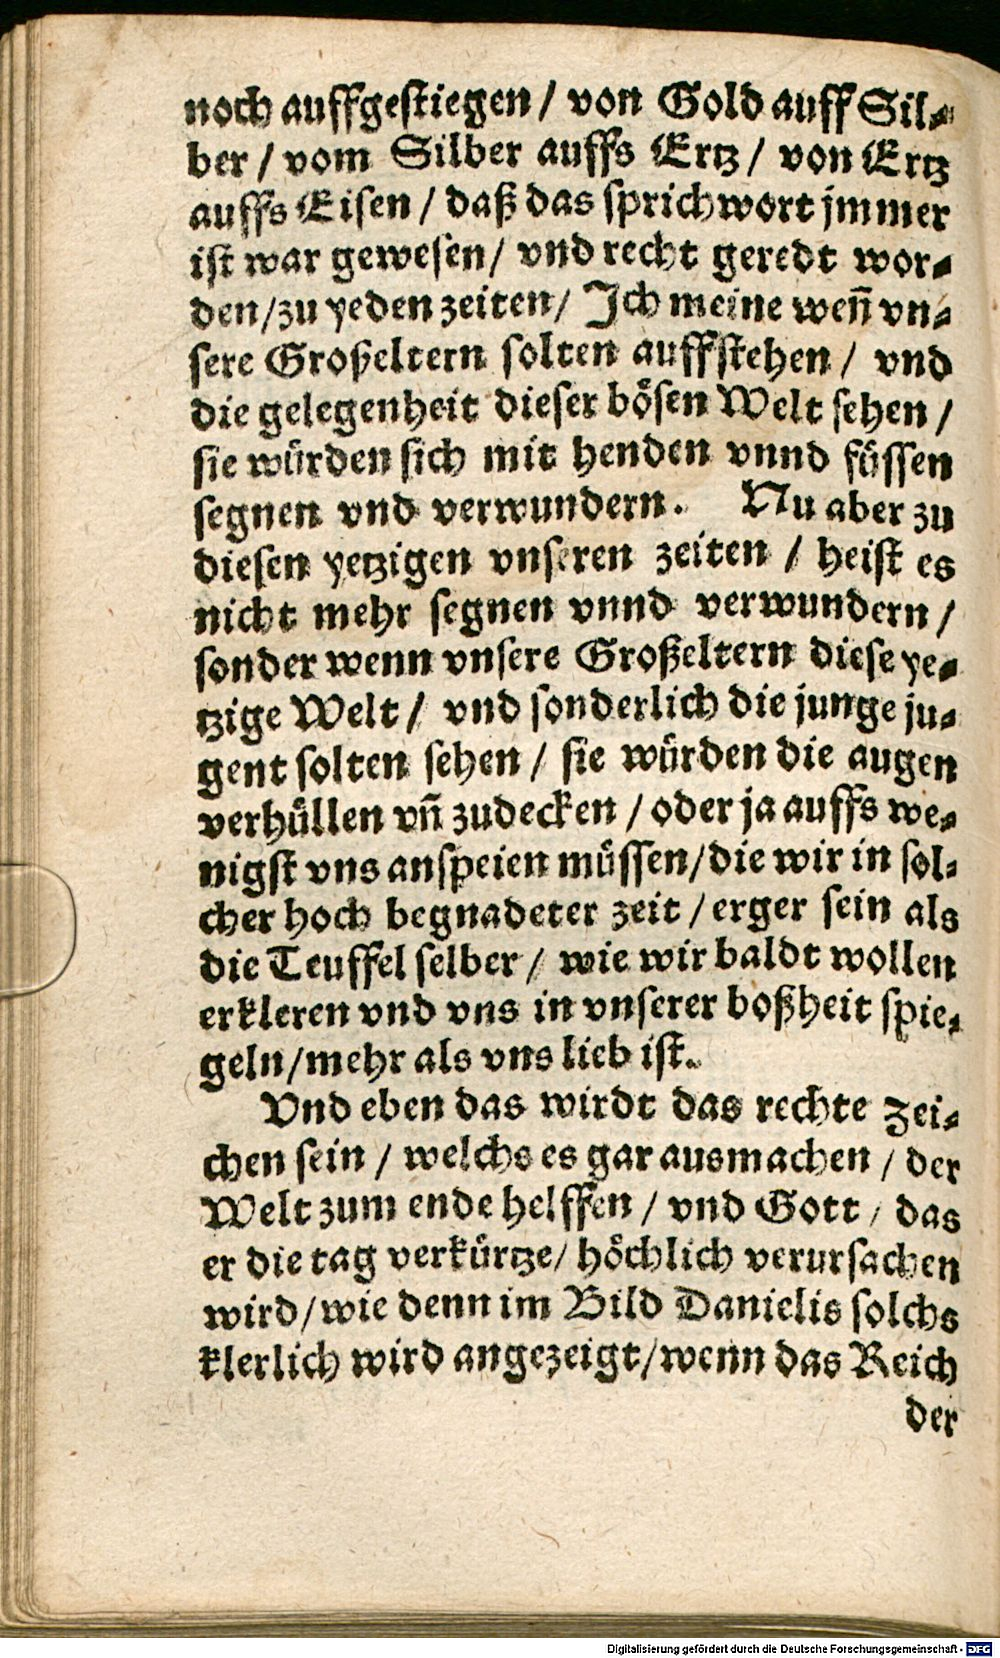 noch auffgestiegen / von Gold auff Sil-
ber / vom Silber auffs Ertz / von Ertz
auffs Eisen / daß das sprichwort jmmer
ist war gewesen / vnd recht geredt wor-
den / zu yeden zeiten / Ich meine weñ vn-
sere Großeltern solten auffstehen / vnd
die gelegenheit dieser bösen Welt sehen /
sie würden sich mit henden vnnd füssen
segnen vnd verwundern. Nu aber zu
diesen yetzigen vnseren zeiten / heist es
nicht mehr segnen vnnd verwundern /
sonder wenn vnsere Großeltern diese ye-
tzige Welt / vnd sonderlich die junge ju-
gent solten sehen / sie würden die augen
verhüllen vñ zudecken / oder ja auffs we-
nigst vns anspeien müssen / die wir in sol-
cher hoch begnadeter zeit / erger sein als
die Teuffel selber / wie wir baldt wollen
erkleren vnd vns in vnserer boßheit spie-
geln / mehr als vns lieb ist.
Vnd eben das wirdt das rechte Zei-
chen sein / welchs es gar ausmachen / der
Welt zum ende helffen / vnd Gott / das
er die tag verkürtze / höchlich verursachen
wird / wie denn im Bild Danielis solchs
klerlich wird angezeigt / wenn das Reich
der
Digitalisierung gefördert durch die Deutsche Forschungsgemeinschaft - DFG